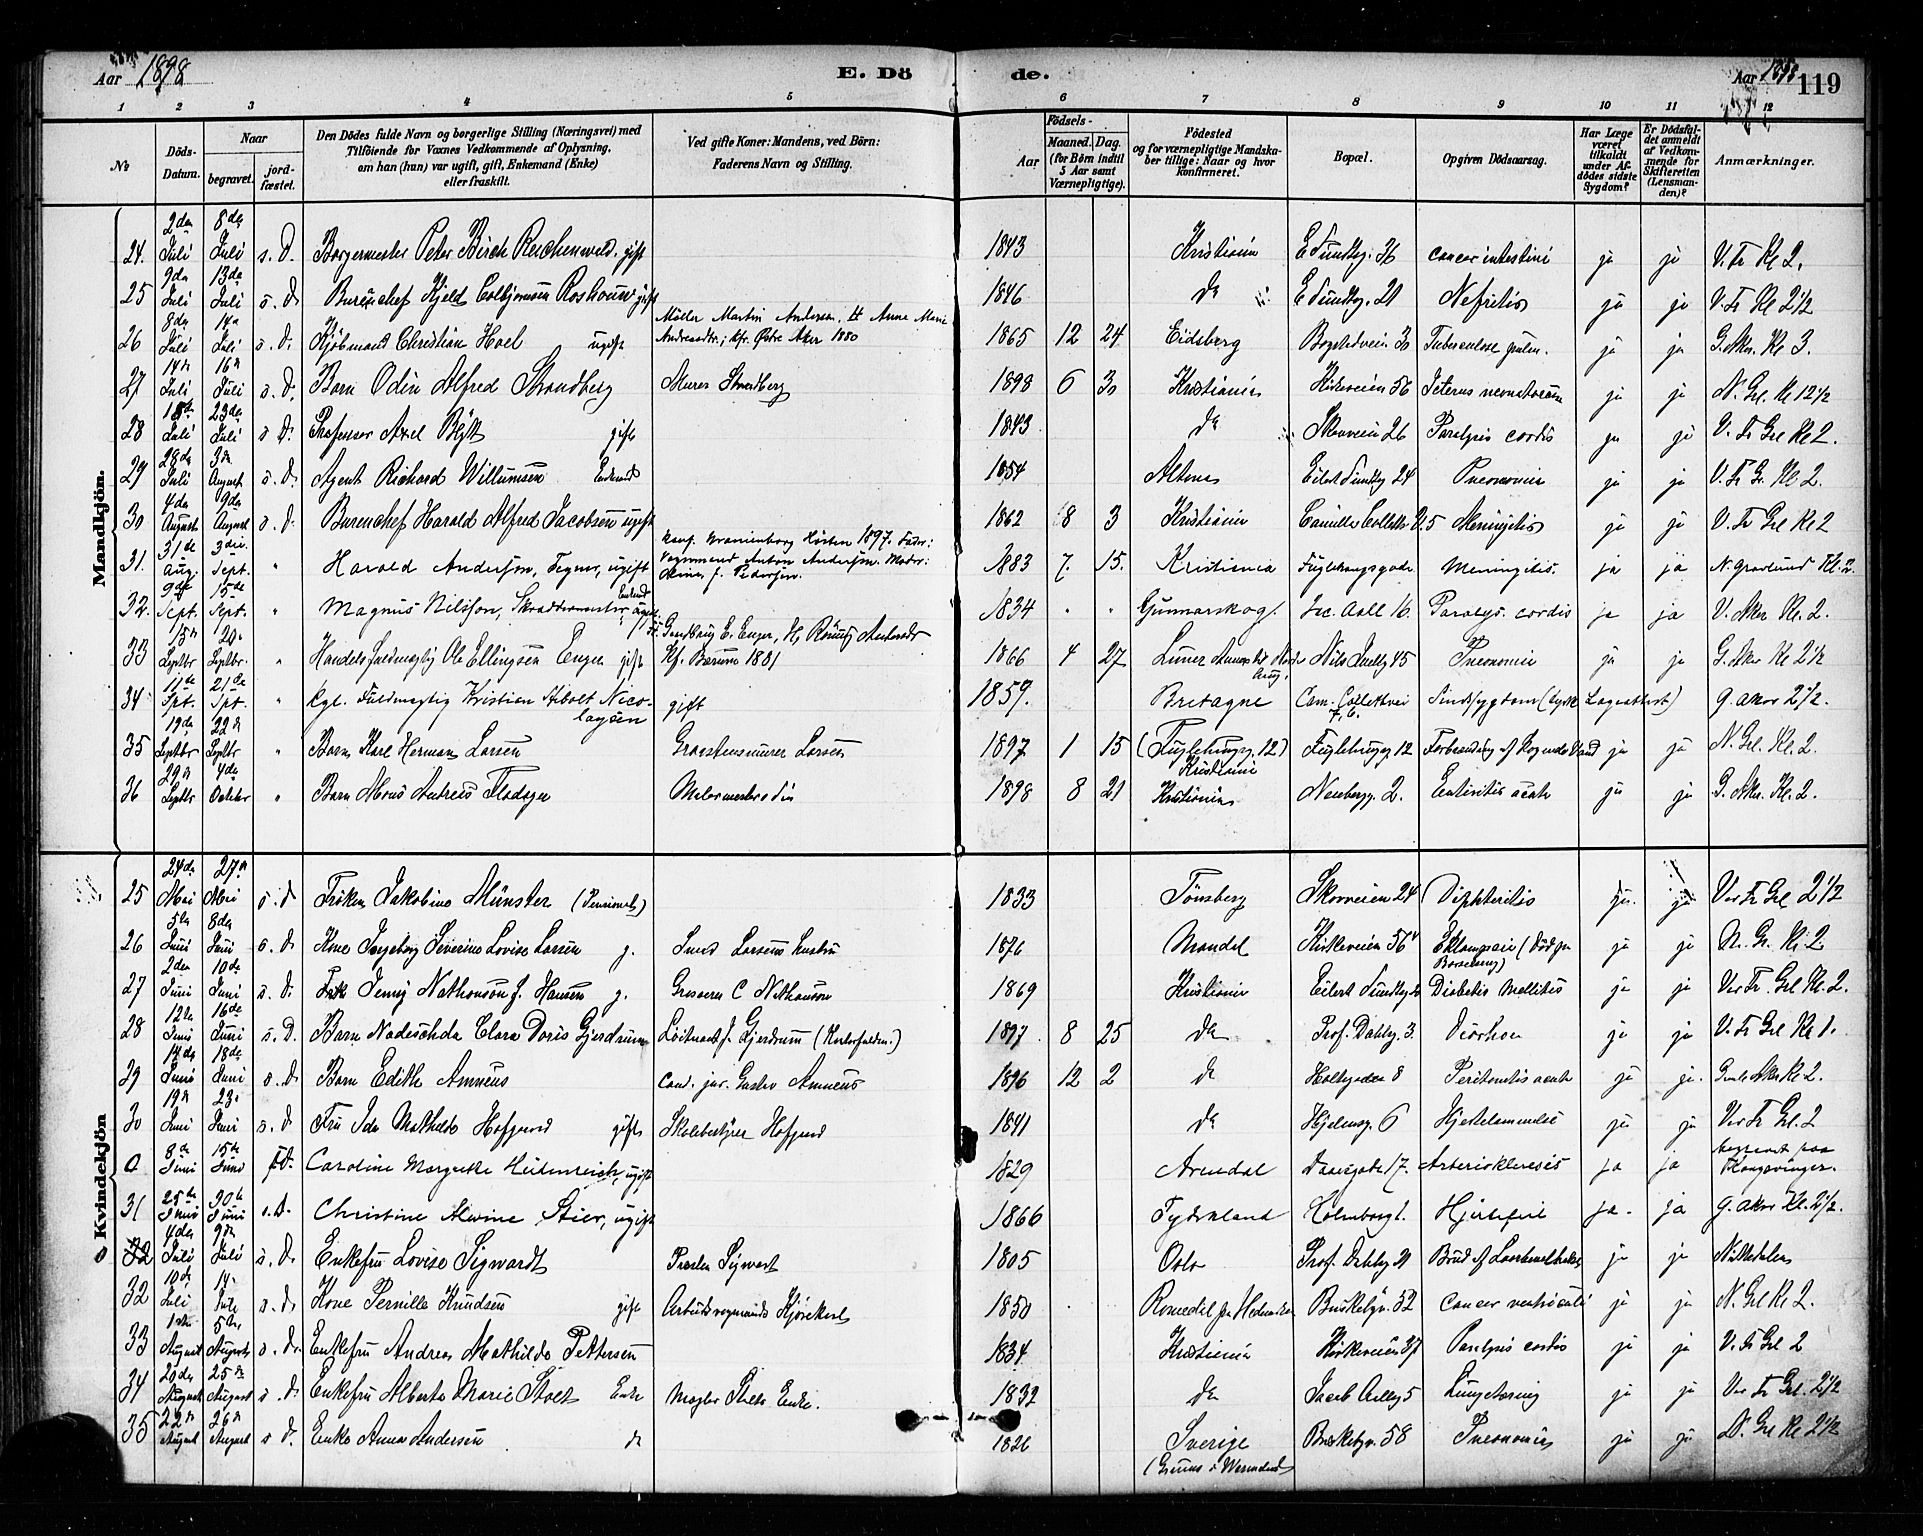 Aar 1898 E. Döde. Aar 1898 119
1 2 3 4 5 6 7 8 9 10 11 12
№ Döds-Datum. Naar begravet. jordfæstet. Den Dödes fulde Navn og borgerlige Stilling (Næringsvei) med Tilföiende for Voxnes Vedkommende af Oplysning, om han (hun) var ugift, gift, Enkemand (Enke) eller fraskilt. Ved gifte Koner: Mandens, ved Börn: Faderens Navn og Stilling. Födsels- Aar Maaned. Dag. (for Börn indtil 5 Aar samt Værnepligtige). Födested og for værnepligtige Mandskaber tillige: Naar og hvor konfirmeret. Bopæl. Opgiven Dödsaarsag. Har Læge været tilkaldt under Afdödes sidste Sygdom? Er Dödsfaldet anmeldt af Vedkommende for Skifteretten (Lensmanden)? Anmærkninger.
Mandkjön.
24. 2den Juli 8de Juli s. D. Borgermester Peter Birch Reichenwald. gift 1843 Kristiania E. Sundtsg. 36 cancer intestini ja ja V. Fr Kl 2.
25 9de Juli 13de Juli s. D. Bureauchef Kjeld gift 1846 Do E. Sundtsg. 21 Nefritis ja ja V. Fr Kl 2 1/2
26 8de Juli 14 Juli s. D. Kjöbmand Christian Hoel ugift Möller Martin Andersen. H Anne Marie Andreasdtr.; kfr. Östre Aker 1880 1865 12 24 Eidsberg Bogstadveien 30 Tuberculose pulm. ja ja G. Aker. Kl 3.
27 14 Juli 16 Juli s. D. Barn Odin Alfred Strandberg Murer Strandberg 1898 6 30 Kristiania Kirkeveien 56 Icterus neonatorum ja ja N. Grl. Kl 12 1/2
28 18de Juli 23de Juli s D. Professor Axel Blytt gift 1843 Do Skovveien 26 Paralysis cordis ja ja V. Fr Grl Kl 2.
29 28de Juli 3 August s. D. Agent Richard Willumsen Enkemd 1854 Altona Eilert Sundtsg 24 Pneumonia ja ja V. Fr Gr. Kl 2.
30 4de August 9de August s. D. Bureauchef Harald Alfred Jacobsen ugift 1862 8 3 Kristiania Camilla Colletts V. 5 Meningitis ja ja V. Fr Grl Kl 2
31. 31te Aug. 3die Sept. " Harald Andersen, Tegner, ugift Konf. Uranienborg Hösten 1897. Fader: Vognmand Anton Andersen. Moder: f. Pedersen. 1883 7. 15. Kristiania Fuglehaugsgade Meningitis. ja ja N. Gravlund Kl. 2.
32. 9de Sept. 15de Sept. " Magnus Nilsson, Skræddermester, Enkemd 1834 " " Gunnarskog. Jac. Aall 16. Paralys. cordis ja ja V. Aker Kl. 2.
33 15 Septbr. 20. Septbr. " Handelsfuldmægtig Ole Ellingsen Enger gift Gaardbrug E. Enger, H. Kf. Bærum 1881 1866 4 27 Lunner Nils Juelsg 45 Pneumonia ja ja G. Aker Kl 2 1/2
34 11te Spt. 21de Spt. " kgl. Fuldmægtig Kristian Stibolt Nicolaysen gift 1859. Bretagne Cam. Collettsvei 6. Sindssygdom (tysk Lægeattest) G. aker 2 1/2.
35 19de Septbr 22 Septbr " Barn Karl Herman Larsen Graastensmurer Larsen 1897 1 15 (Fuglehaugg. 12) Kristiania Fuglehaugg 12 Forbrænding af kogende Vand ja ja N. Grl. Kl. 2.
36 29 Septbr 4de Oktober " Barn Mons Andreas Flodager Malermester 1898 8 21 Kristiania Neubergg. 2. Enteritis acuta ja ja G. Aker. Kl. 2.
Kvindekjön
25 24de Mai 27 Mai s. D Fröken Jakobine Münster (Pensionist) 1833 Tönsberg Skovveien 24 Diphteritis ja ja Vor Fr Grl 2 1/2
26 5te Juni 8de Juni s. D. Kone Ingeborg Severine Lovise Larsen g. Smed Larsens Hustru 1876 Mandal Kirkeveien 56 Eklampsia (Död paa Barselseng) ja ja N. Gr. Kl 2
27 2den Juni 10de Juni s. D. Fru Jenny Nathanson f. Hansen g. Grosserer C Nathanson 1869 Kristiania Eilert Sundtsg Diabetis Mellitus ja ja Vor Fr. Grl Kl. 2.
28 12te Juni 16de Juni s. D. Barn Nadeschda Clara Doris Gjerdrum Löitnant J. Gjerdrum 1897 8 25 Do Prof. Dahlsg. 3. Diarrhoe ja ja V. Fr Grl Kl 1.
29 14de Juni 18de Juni s. D Barn Edith Amneus Cand. jur. Gustav Amneus 1896 12 2 Do Holtegaden 8 Peritonitis acuta ja ja. Gamle Aker Kl 2.
30 19 Juni 23. Juni s. D Fru Ida Mathilde Hofgaard gift Skolebestyrer Hofgaard 1841 Do Hjelmsg. 6 Hjertelammelse ja ja Vor Fr Grl. 2
0 8de Juni 15de Juni Caroline Margrethe Heidenreich, ugift 1829 Arendal Daasgade 17. Arteriosklerosis ja ja begravet paa Kongsvinger.
31 25de Juni 30te Juni s. D. Christine Alwine Stier, ugift 1866 Tydskland Holmborg 1. Hjertefeil ja. ja G. aker Kl. 2 1/2.
32 4de Juli 9de Juli s. D. Enkefru Lovise Sigwardt Præsten Sigwart 1805 Oslo Prof. Dahlsg 21 Brud af Laarbenshalsen ja ja Nittedalen
32 10de Juli 14 Juli s. D. Kone Pernille Knudsen gift Arbeidsvognmands Kjörekarl 1850 Romedal paa Hedemarken Briskebyv. 32 Cancer ventriculi ja ja N. Grl Kl 2.
33 1ste August 5te August s. D. Enkefru Andrea Mathilde Pettersen 1834. Kristiania Kirkeveien 37 Paralysis cordis ja ja V. Fr Grl 2
34 20de August 25de August s. D. Enkefru Alberta Marie Stolt Enke Mægler Stolts Enke. 1832 Do Jacob Aallsg 5 Lungetæring ja ja Vor Fr Grl. 2 1/2
35 22 August 26de August s. D. Enke Anna Andersen do 1826 Sverige (Grums i Wermland) Briskebyv. 58 Pneumonia ja ja N. Grl Kl 2 1/2